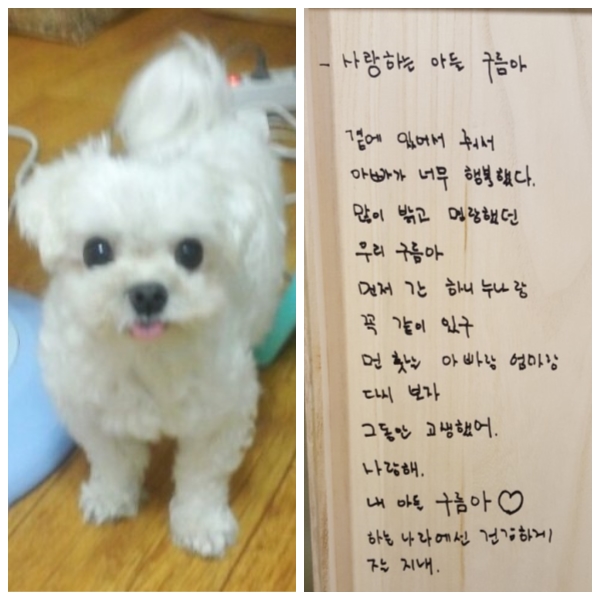 - 사랑하는 아들 구름아
곁에 있어서 줘서
아빠가 너무 행복했다.
많이 밝고 명랑했던
우리 구름아
먼저 간 하니 누나랑
꼭 같이 있구
먼 훗날 아빠랑 엄마랑
다시 보자
그동안 고생했어.
사랑해.
내 아들 구름아♡
하늘나라에선 건강하게
잘 지내.